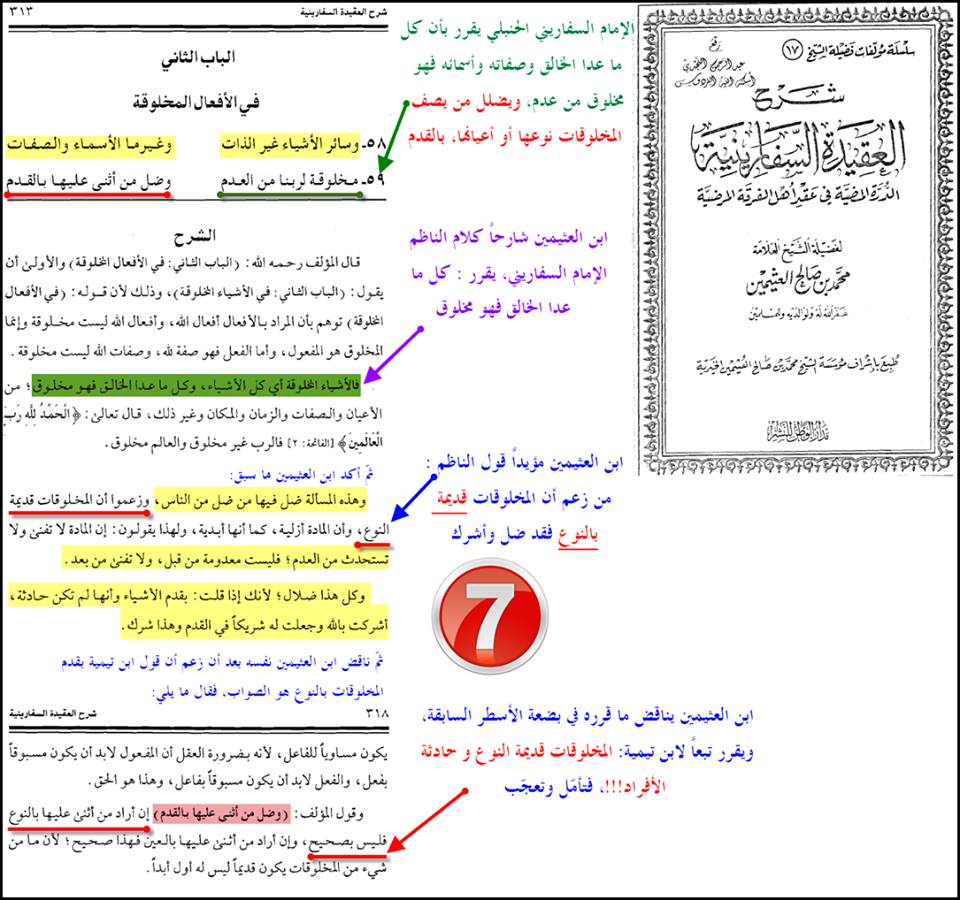 سلسلة مؤلفات فضيلة الشيخ ١٧
شرح
العقيدة السفارينية
الدرة المضية في عقد أهل الفرقة المرضية
لفضيلة الشيخ العلامة
محمد بن صالح العثيمين
غفر الله له ولوالديه وللمسلمين
طبع بإشراف مؤسسة الشيخ محمد بن صالح العثيمين الخيرية
مدار الوطن للنشر
شرح العقيدة السفارينية
٣١٣
الباب الثاني
في الأفعال المخلوقة
٥٨ـ وسائر الأشياء غير الذات وغيرما الأسماء والصفات
٥٩ـ مخلوقة لربنا من العدم وضل من أثنى عليها بالقدم
الشرح
قال المؤلف رحمه الله: (الباب الثاني: في الأفعال المخلوقة) والأولى أن
يقول: (الباب الثاني: في الأشياء المخلوقة)، وذلك لأن قوله: (في الأفعال
المخلوقة) توهم بأن المراد بالأفعال أفعال الله، وأفعال الله ليست مخلوقة وإنما
المخلوق هو المفعول، وأما الفعل فهو صفة لله، وصفات الله ليست مخلوقة.
فالأشياء المخلوقة أي كل الأشياء، وكل ما عدا الخالق فهو مخلوق؛ من
الأعيان والصفات والزمان والمكان وغير ذلك، قال تعالى: ﴿الْحَمْدُ لِلَّهِ رَبِّ
الْعَالَمِينَ﴾ [الفاتحة: ٢] فالرب غير مخلوق والعالم مخلوق.
ثمّ أكد ابن العثيمين ما سبق:
وهذه المسألة ضل فيها من ضل من الناس، وزعموا أن المخلوقات قديمة
النوع، وأن المادة أزلية، كما أنها أبدية، ولهذا يقولون: إن المادة لا تفنى ولا
تستحدث من العدم؛ فليست معدومة من قبل، ولا تفنى من بعد.
وكل هذا ضلال؛ لأنك إذا قلت: بقدم الأشياء وأنها لم تكن حادثة،
أشركت بالله وجعلت له شريكاً في القدم وهذا شرك.
ثمّ ناقض ابن العثيمين نفسه بعد أن زعم أن قول ابن تيمية بقدم
المخلوقات بالنوع هو الصواب، فقال ما يلي:
٣١٨
شرح العقيدة السفارينية
يكون مساوياً للفاعل، لأنه بضرورة العقل أن المفعول لابد أن يكون مسبوقاً
بفعل، والفعل لابد أن يكون مسبوقاً بفاعل، وهذا هو الحق.
وقول المؤلف: (وضل من أثنى عليها بالقدم) إن أراد من أثنى عليها بالنوع
فليس بصحيح، وإن أراد من أثنى عليها بالعين فهذا صحيح؛ لأن ما من
شيء من المخلوقات يكون قديماً ليس له أول أبداً.
الإمام السفاريني الحنبلي يقرر بأن كل
ما عدا الخالق وصفاته وأسمائه فهو
مخلوق من عدم، ويضلل من يصف
المخلوقات نوعها أو أعيانها، بالقدم
ابن العثيمين شارحاً كلام الناظم
الإمام السفاريني، يقرر : كل ما
عدا الخالق فهو مخلوق
ابن العثيمين مؤيداً قول الناظم :
من زعم أن المخلوقات قديمة
بالنوع فقد ضل وأشرك
7
ابن العثيمين يناقض ما قرره في بضعة الأسطر السابقة،
ويقرر تبعاً لابن تيمية: المخلوقات قديمة النوع و حادثة
الأفراد!!!، فتأمّل وتعجّب